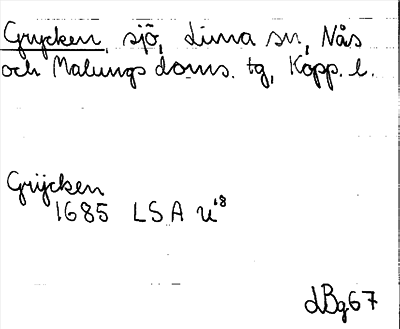 Grycken, sjö, Lima sn, Nås
och Malungs doms. tg, Kopp. l.
Grÿcken
1685 LSA U¹⁸
LBg67